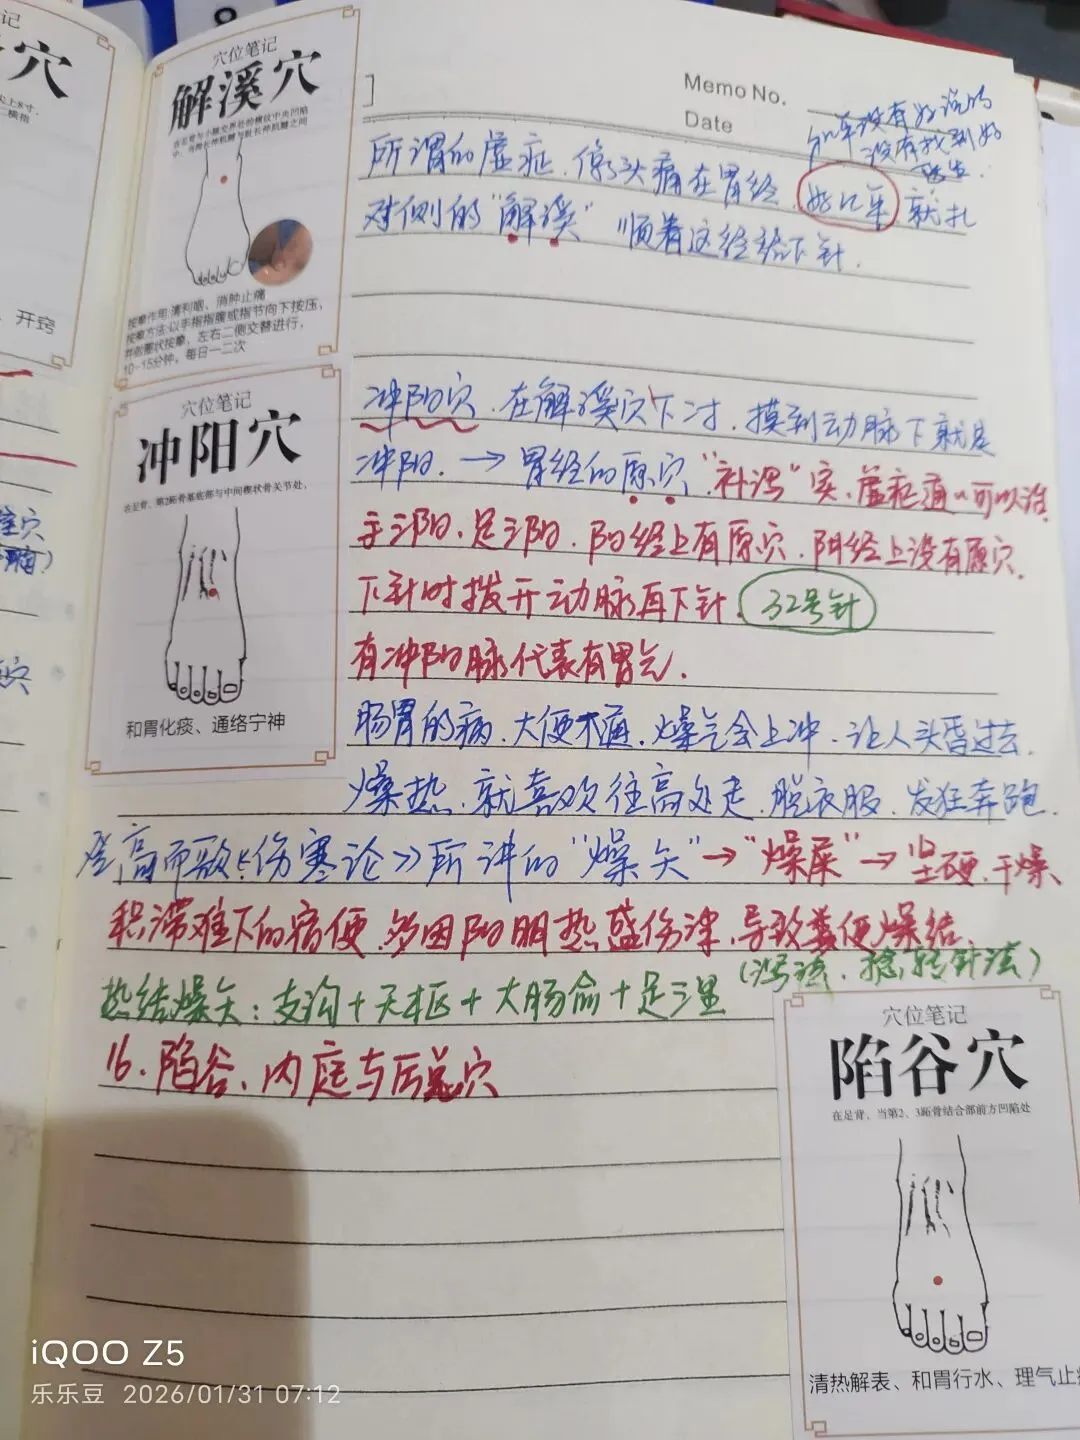 穴位笔记
解溪穴
在足背与小腿交界处的横纹中央凹陷
中，当拇长伸肌腱与趾长伸肌腱之间
按摩作用:清利咽、消肿止痛
按摩方法:以手指指腹或指节向下按压，
并做圈状按摩，左右二侧交替进行，
10-15分钟，每日一二次
Memo No.
Date
几年没有好说的
没有找到好
医生.
所谓的虚症.像头痛在胃经.好几年 就扎
对侧的“解溪” 顺着这经络下针.
穴位笔记
冲阳穴
在足背，第2跖骨基底部与中间楔状骨关节处，
和胃化痰、通络宁神
冲阳穴.在解溪穴下2寸.摸到动脉下就是
冲阳.→胃经的原穴“补泻”实、虚症通通可以治.
手三阳.足三阳.阳经上有原穴.阴经上没有原穴.
下针时拨开动脉再下针.32号针
有冲阳脉代表有胃气.
肠胃的病.大便不通.燥气会上冲.让人头昏过去.
燥热.就喜欢往高处走.脱衣服.发狂奔跑.
登高而歌.《伤寒论》所讲的“燥矢”→“燥屎”→坚硬.干燥、
积滞难下的宿便.多因阳明热盛伤津.导致粪便燥结.
(泻法.捻转针法)
热结燥矢:支沟+天枢+大肠俞+足三里
16、陷谷、内庭与厉兑穴
穴位笔记
陷谷穴
在足背，当第2、3跖骨结合部前方凹陷处
清热解表、和胃行水、理气止
开窍
iQOO Z5
乐乐豆 2026/01/31 07:12